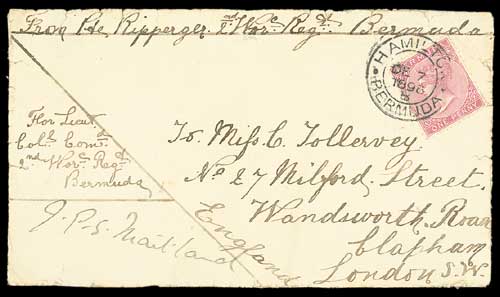 From Pte Ripperger. 2nd Worc. Regt. Bermuda
HAMILTO
DE 7
1896
BERMUDA
ONE PENNY
For Lieut.
Colл. Comd.
2nd Worc. Regt.
Bermuda
To Miss C. Tollervey
No 27 Milford Street.
Wandsworth Road
Clapham
London S.W.
England
J.P.S. Maitland